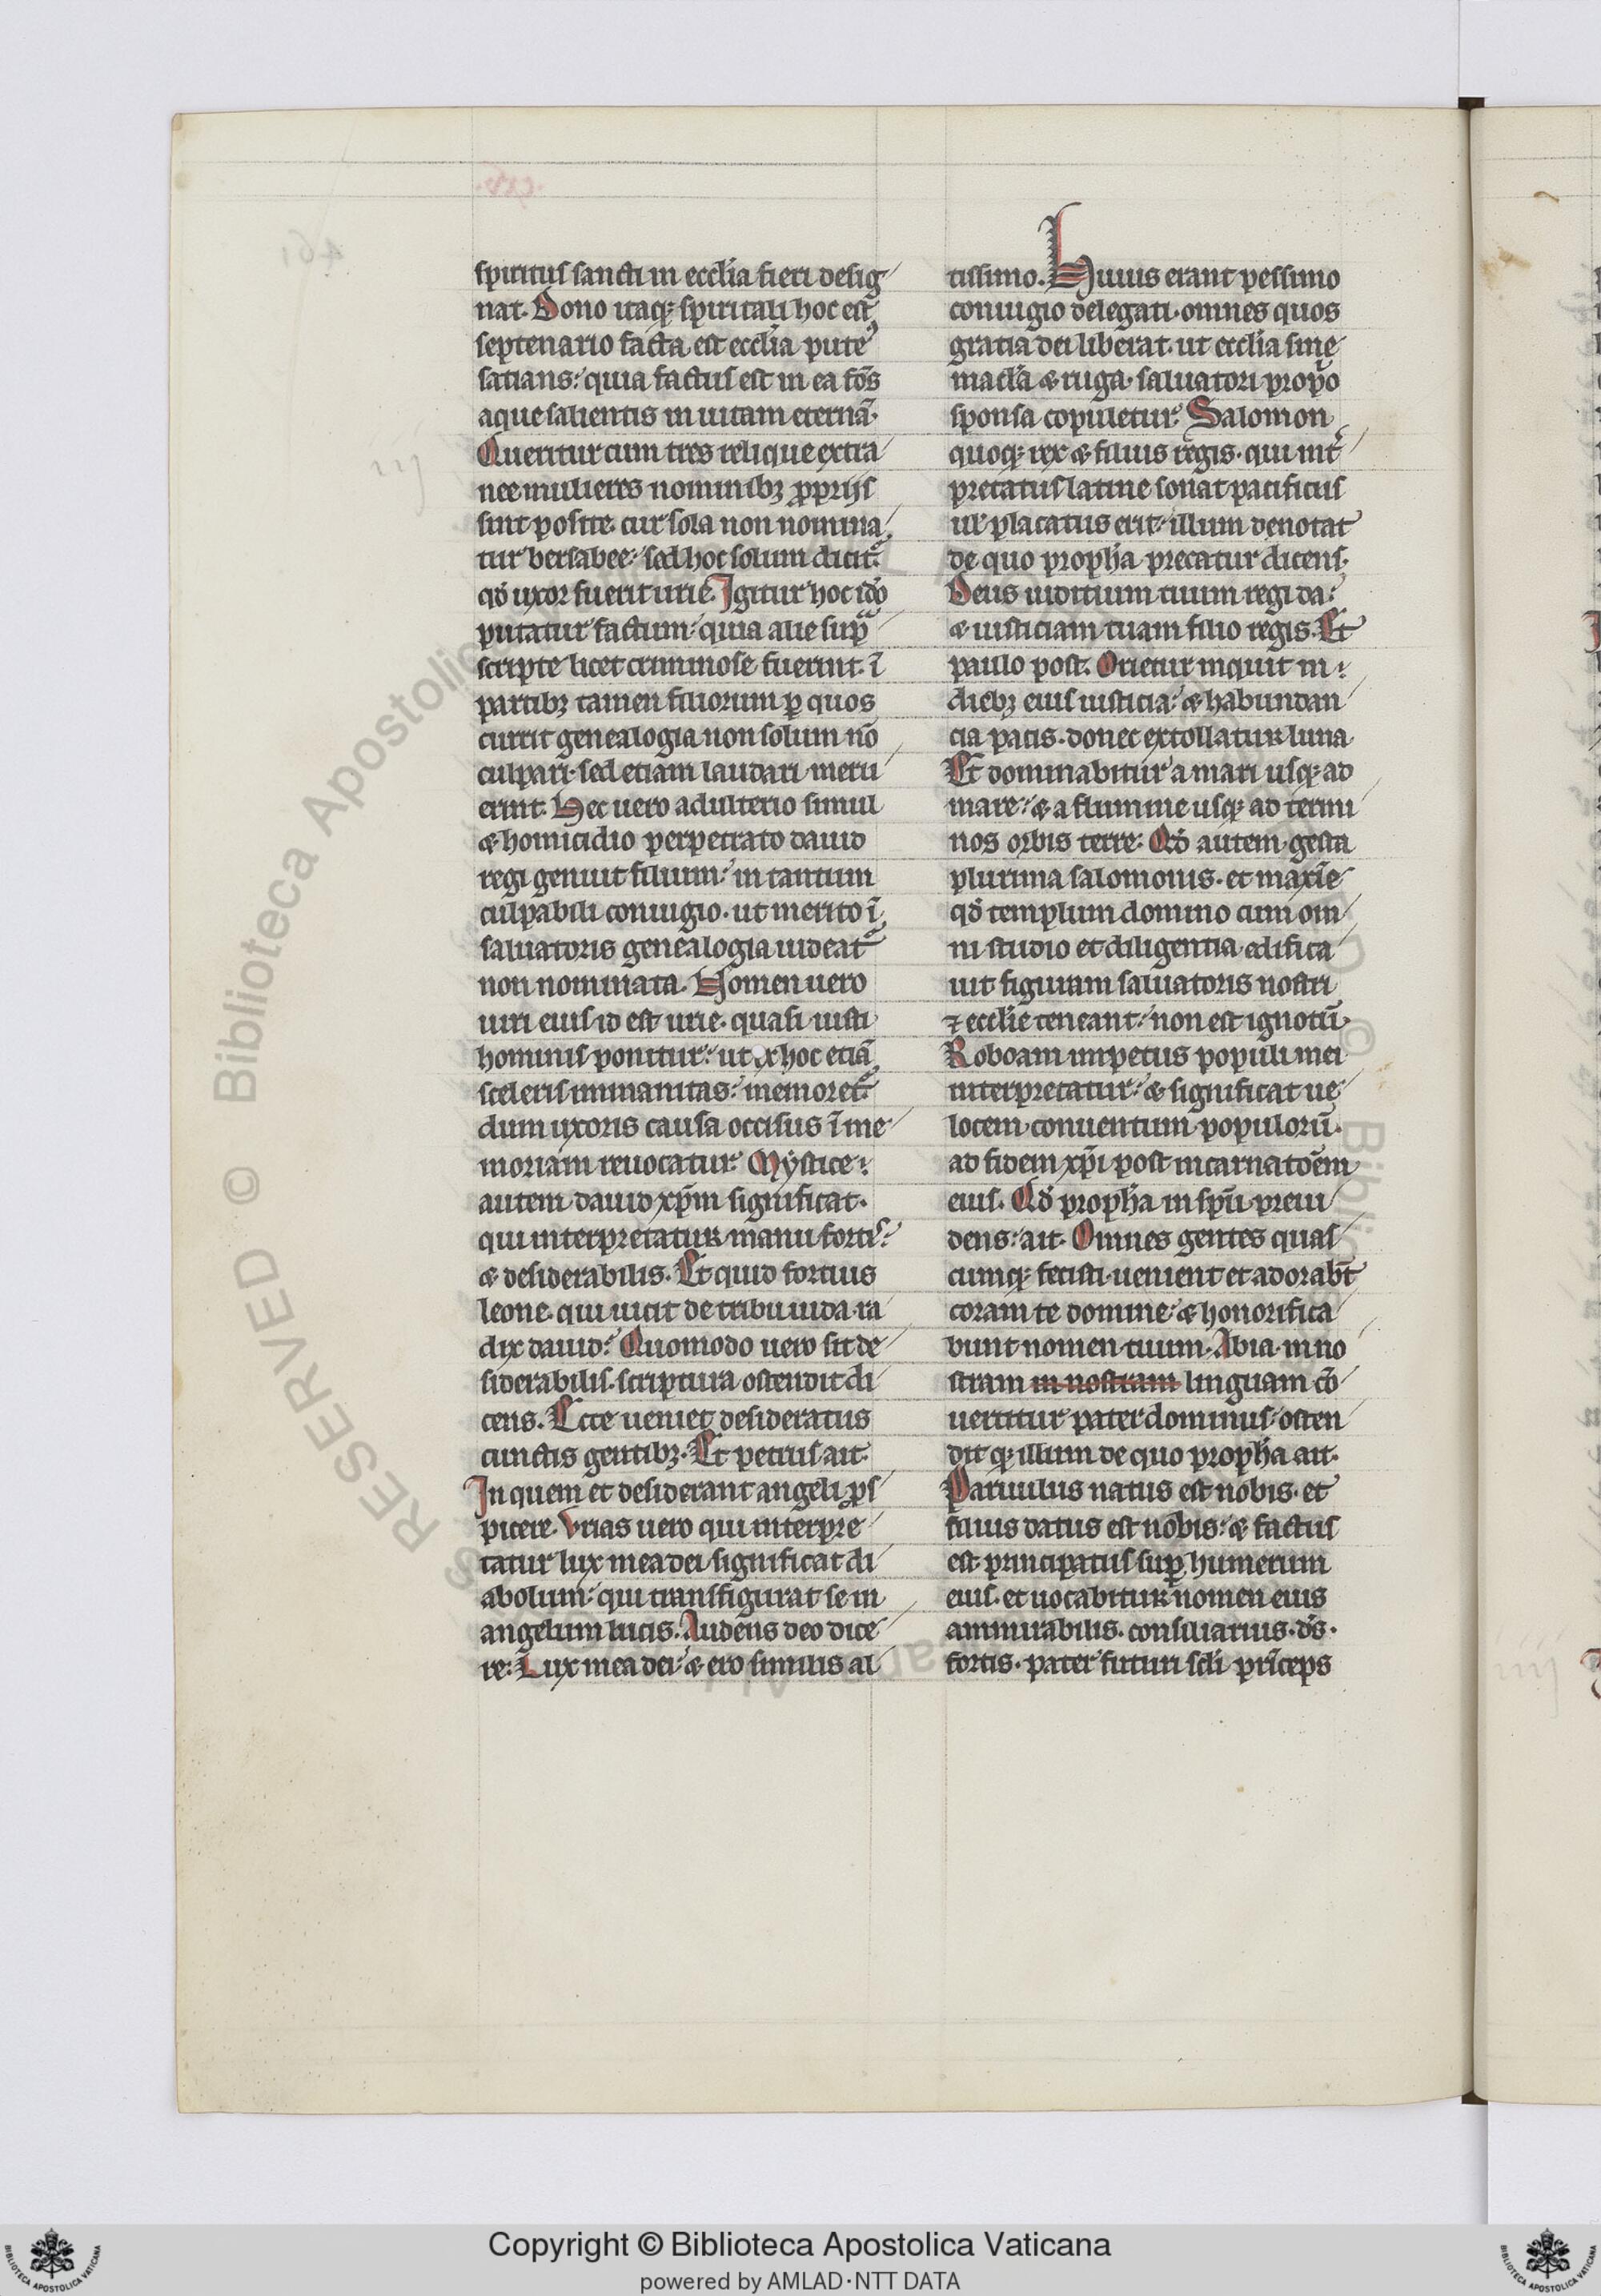 spiritus sancti in eccl'ia fieri desig
nat. Dono itaq; spiritali hoc est
septenario facta est eccl'ia pute'
satians: quia factus est in ea fōs
aque salientis in uitam eternā.
Queritur cum tres relique extra
nee mulieres nominibꝫ ꝓprijs
sint posite. cur sola non nomina
tur bersabee: sed hoc solum dicit᷑
qđ uxor fuerit urie. Igitur hoc idō
putatur factum: quia alie supᵃ
scripte licet criminose fuerint. ī
partibꝫ tamen filiorum ꝑ quos
currit genealogia non solum nō
culpari. sed etiam laudari meru
erint. Hec uero adulterio simul
& homicidio perpetrato dauid
regi genuit filium: in tantum
culpabili coniugio. ut merito ī
saluatoris genealogia uideat᷑
non nominata. Nomen uero
uiri eius id est urie. quasi iusti
hominis ponitur: ut ex hoc etiā
sceleris immanitas: memoret᷑
dum uxoris causa occisus ī me
moriam reuocatur. Mystice
autem dauid xp̄m significat.
qui interpretatur manu fortis
& desiderabilis. Et quid fortius
leone. qui uicit de tribu iuda ra
dix dauid: Quomodo uero sit de
siderabilis. scriptura ostendit di
cens. Ecce ueniet desideratus
cunctis gentibꝫ. Et petrus ait.
In quem et desiderant angeli ꝓs
picere. Vrias uero qui interpre
tatur lux mea dei significat di
abolum: qui transfigurat se in
angelum lucis. Audens deo dice
re: Lux mea dei: & ero similis al
tissimo. Huius erant pessimo
coniugio delegati. omnes quos
gratia dei liberat. ut eccl'ia sine
macl'a & ruga. saluatori prop'o
sponsa copuletur. Salomon
quoq; rex & filius regis. qui int'
pretatus latine sonat pacificus
ul' placatus erit: illum denotat
de quo proph'a precatur dicens.
Deus iuditium tuum regi da:
& iusticiam tuam filio regis. Et
paulo post. Orietur inquit in
diebꝫ eius iusticia: & habundan
cia pacis. donec extollatur luna
Et dominabitur a mari usq; ad
mare: & a flumine usq; ad termi
nos orbis terre. Qđ autem gesta
plurima salomonis. et maxīe
qđ templum domino cum om
ni studio et diligentia edifica
uit figuram saluatoris nostri
⁊ eccl'ie teneant: non est ignotū.
Roboam impetus populi mei
interpretatur: & significat ue
locem conuentum populorū.
ad fidem xp̄i post incarnatōem
eius. Qđ proph'a in sp̄u preui
dens: ait. Omnes gentes quas
cumq; fecisti uenient et adorab̄t
coram te domine: & honorifica
bunt nomen tuum. Abia in no
stram in nostram linguam cō
uertitur pater dominus: osten
dit q; illum de quo proph'a ait.
Paruulus natus est nobis. et
filius datus est nobis: & factus
est principatus suꝑ humerum
eius. et uocabitur nomen eius
ammirabilis. consiliarius. d's.
fortis. pater futuri scl'i prīceps
Copyright © Biblioteca Apostolica Vaticana
powered by AMLAD·NTT DATA